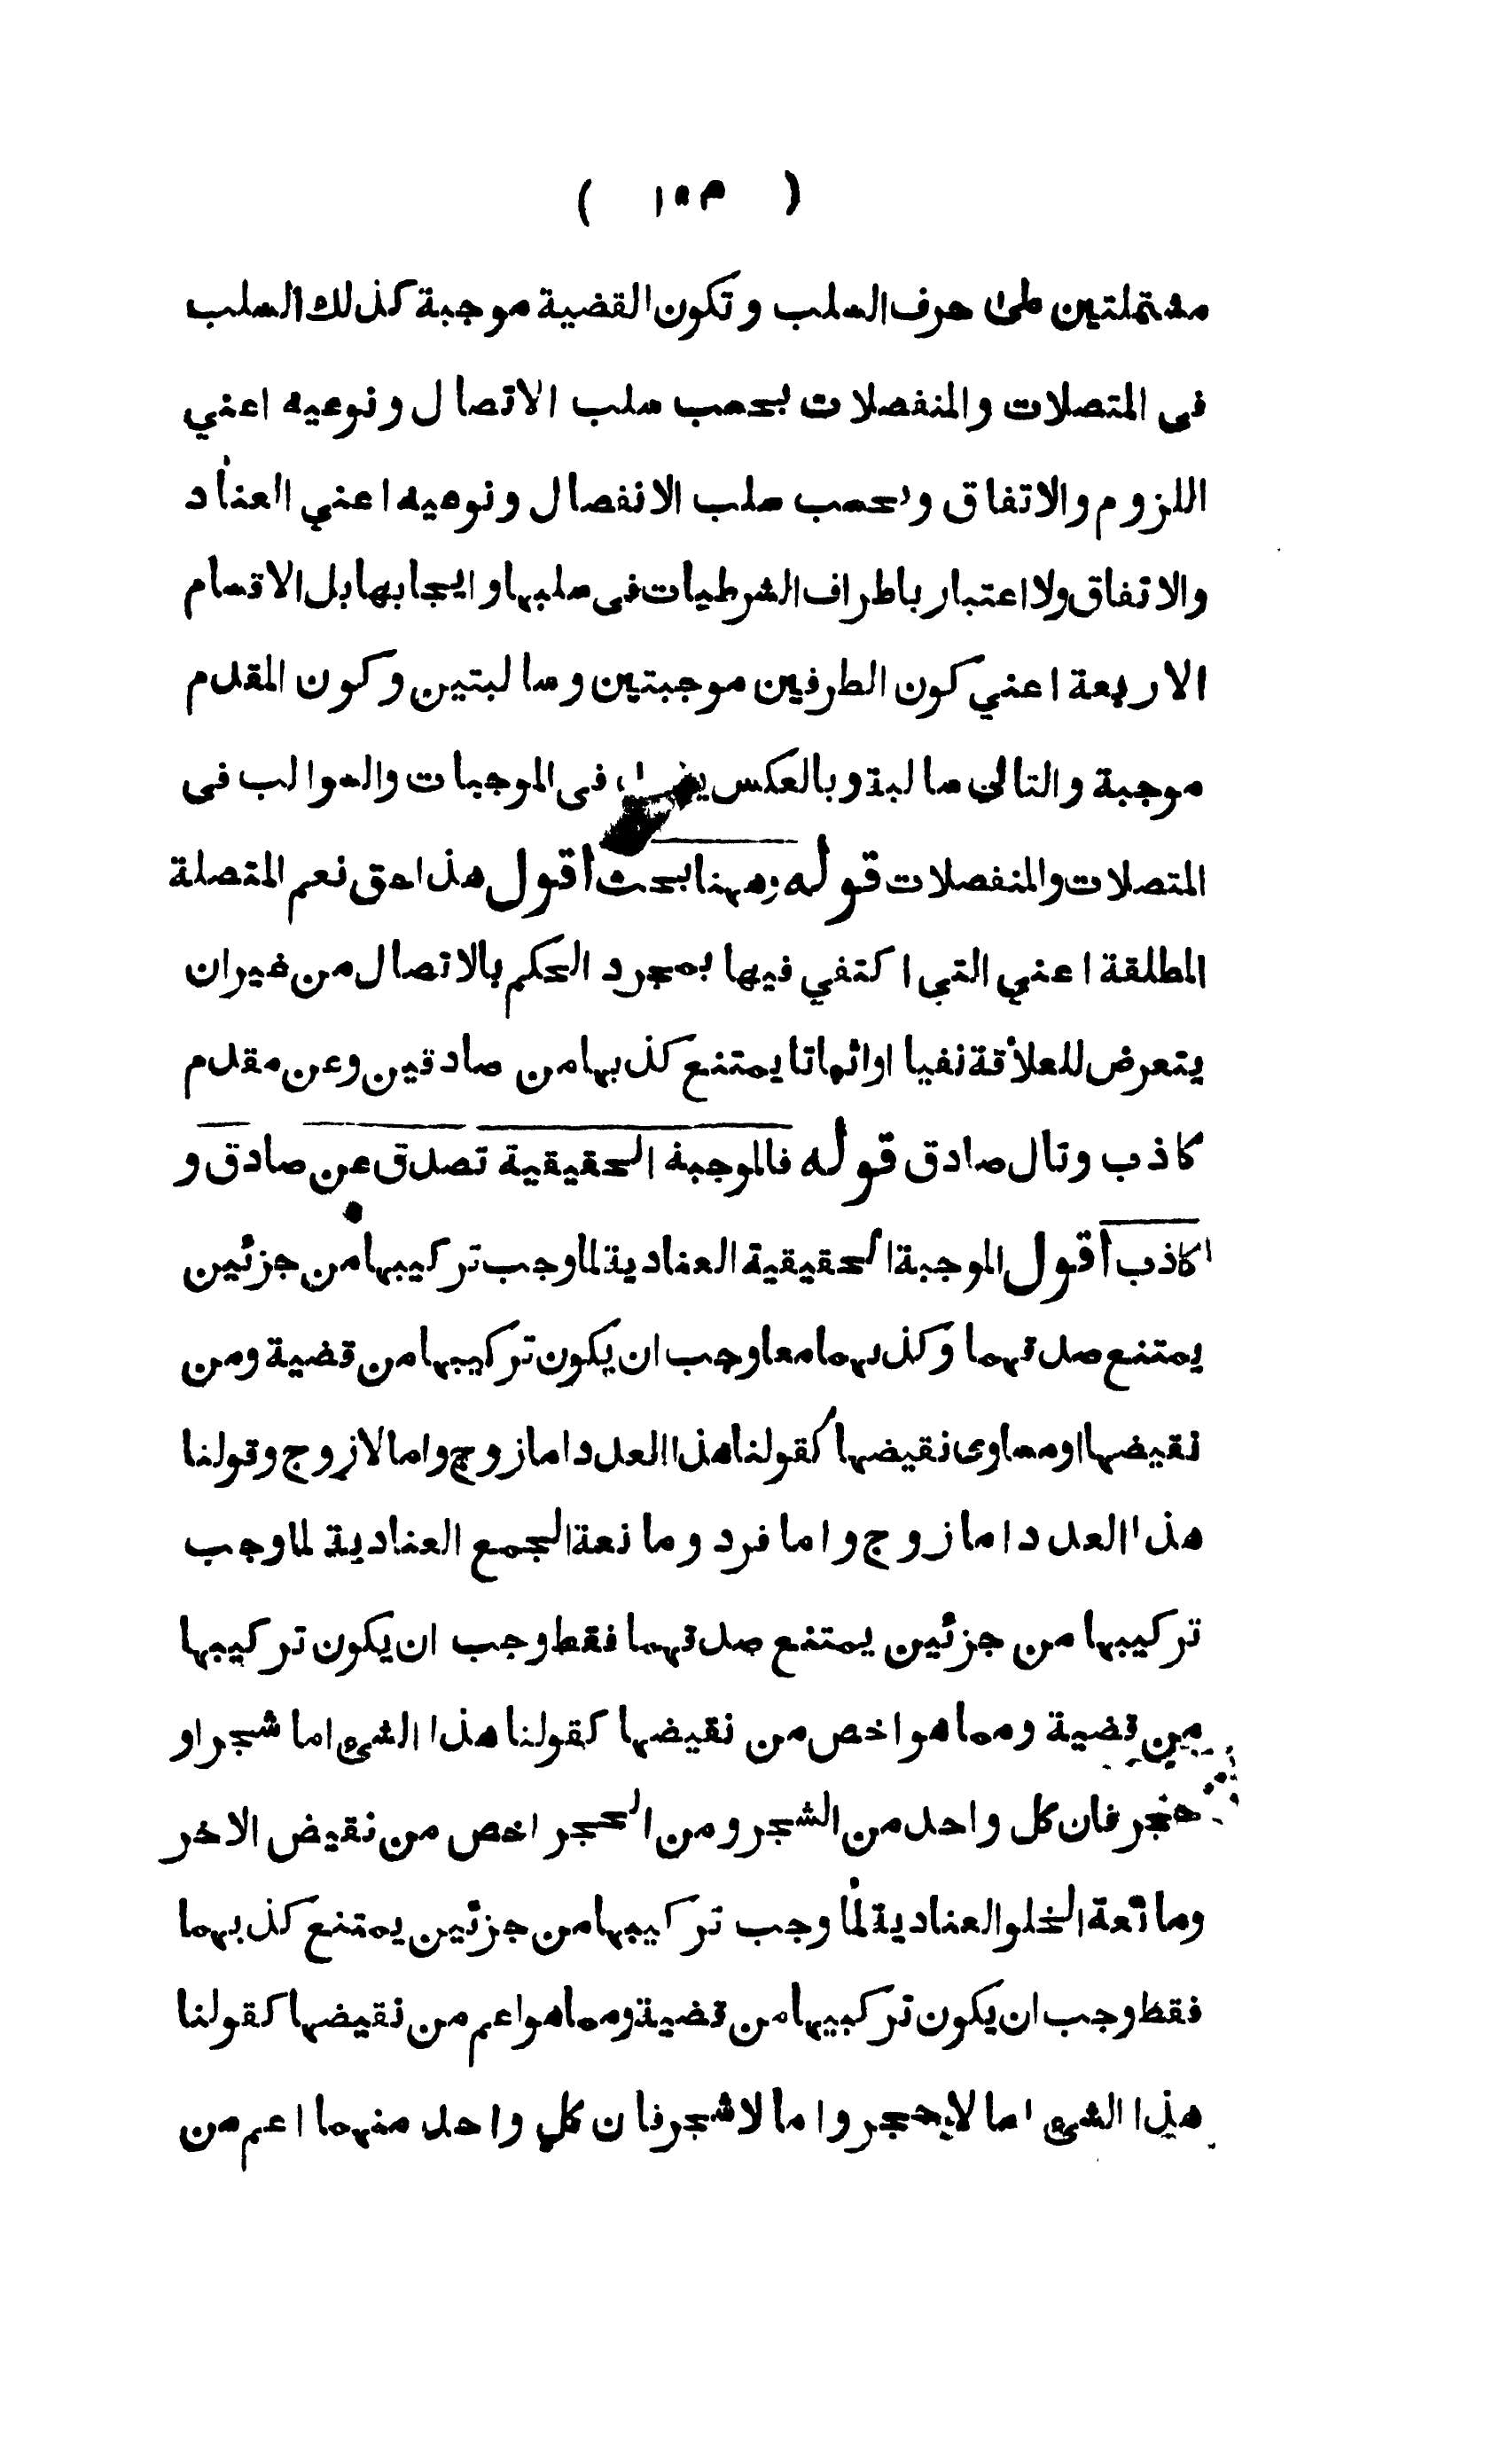 ( ١٥٣ )
مشتملتين على حرف السلب وتكون القضية موجبة كذلك السلب
فى المتصلات والمنفصلات بحسب سلب الاتصال ونوعيه اعني
اللزوم والاتفاق وبحسب سلب الانفصال ونوعيه اعني العناد
والاتفاق ولا اعتبار باطراف الشرطيات فى سلبها وايجابها بل الاقسام
الاربعة اعني كون الطرفين موجبتين وسالبتين وكون المقدم
موجبة والتالى سالبة وبالعكس فى الموجبات والسوالب فى
المتصلات والمنفصلات قوله وههنا بحث اقول هذا حق نعم المتصلة
المطلقة اعني التي اكتفي فيها بمجرد الحكم بالاتصال من غير ان
يتعرض للعلاقة نفيا او اثباتا يمتنع كذبها من صادقين وعن مقدم
كاذب وتال صادق قوله فالموجبة الحقيقية تصدق عن صادق و
كاذب اقول الموجبة الحقيقية العنادية لما وجب تركيبها من جزئين
يمتنع صدقهما وكذبهما معا وجب ان يكون تركيبها من قضية ومن
نقيضها او مساوى نقيضها كقولنا هذا العدد اما زوج واما لا زوج وقولنا
هذا العدد اما زوج واما فرد ومانعة الجمع العنادية لما وجب
تركيبها من جزئين يمتنع صدقهما فقط وجب ان يكون تركيبها
من قضية ومما هو اخص من نقيضها كقولنا هذا الشئ اما شجر او
حجر فان كل واحد من الشجر ومن الحجر اخص من نقيض الاخر
ومانعة الخلو العنادية لما وجب تركيبها من جزئين يمتنع كذبهما
فقط وجب ان يكون تركيبها من قضية ومما هو اعم من نقيضها كقولنا
هذا الشئ اما لا حجر واما لا شجر فان كل واحد منهما اعم من